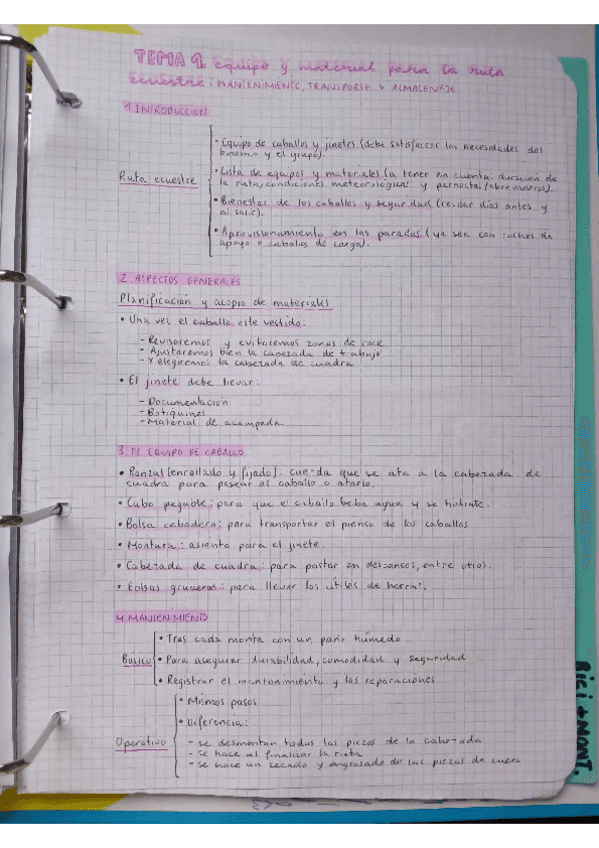 TEMA 9. Equipo y material para la ruta
ecuestre: MANTENIMIENTO, TRANSPORTE Y ALMACENAJE
1. INTRODUCCIÓN
Ruta ecuestre
• Equipo de caballos y jinetes (debe satisfacer las necesidades del
binomio y el grupo).
• Lista de equipos y materiales (a tener en cuenta: duración de
la ruta, condiciones meteorológicas y pernocta/abrevaderos).
• Bienestar de los caballos y seguridad (revisar días antes y
al salir).
• Aprovisionamiento en las paradas (ya sea con coches de
apoyo o caballos de carga).
2. ASPECTOS GENERALES
Planificación y acopio de materiales
• Una vez el caballo este vestido:
- Revisaremos y evitaremos zonas de roce
- Ajustaremos bien la cabezada de trabajo
- Y elegiremos la cabezada de cuadra
• El jinete debe llevar:
- Documentación
- Botiquines
- Material de acampada
3. El EQUIPO DE CABALLO
• Ronzal (enrollado y fijado): cuerda que se ata a la cabezada de
cuadra para pasear al caballo o atarlo.
• Cubo plegable: para que el caballo beba agua y se hidrate.
• Bolsa cebadera: para transportar el pienso de los caballos.
• Montura: asiento para el jinete.
• Cabezada de cuadra: para pastar en descansos, entre otros.
• Bolsas gruperas: para llevar los útiles de herrar.
4. MANTENIMIENTO
Básico
• Tras cada monta con un paño húmedo
• Para asegurar durabilidad, comodidad y seguridad
• Registrar el mantenimiento y las reparaciones
Operativo
• Mismos pasos
• Diferencia:
- se desmontan todas las piezas de la cabezada
- se hace al finalizar la ruta
- se hace un secado y engrasado de las piezas de cuero